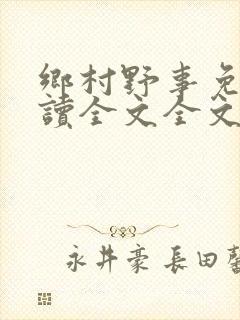 鄉村野事免
讀全文全文
永井豪 長田馨